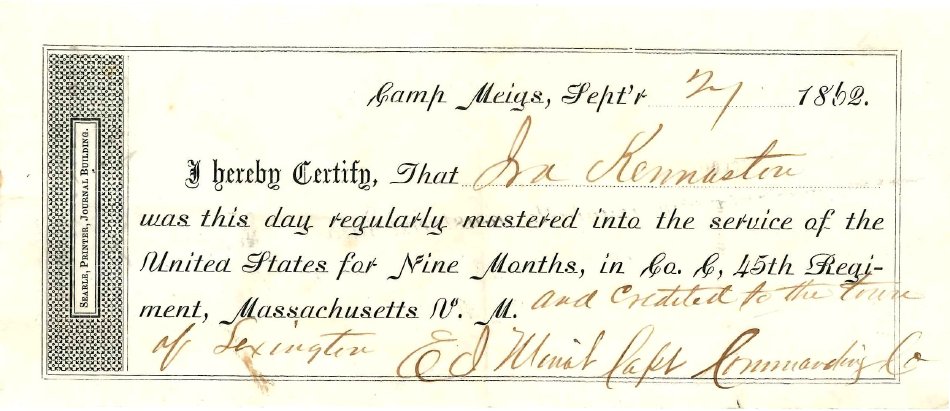 Camp Meigs, Sept'r 27 1862.
I hereby Certify, That Ira Kennaston
was this day regularly mustered into the service of the
United States for Nine Months, in Co. C, 45th Regi-
ment, Massachusetts V. M. and credited to the town
of Lexington E J Minot Capt Commanding Co
SEARLE, PRINTER, JOURNAL BUILDING.